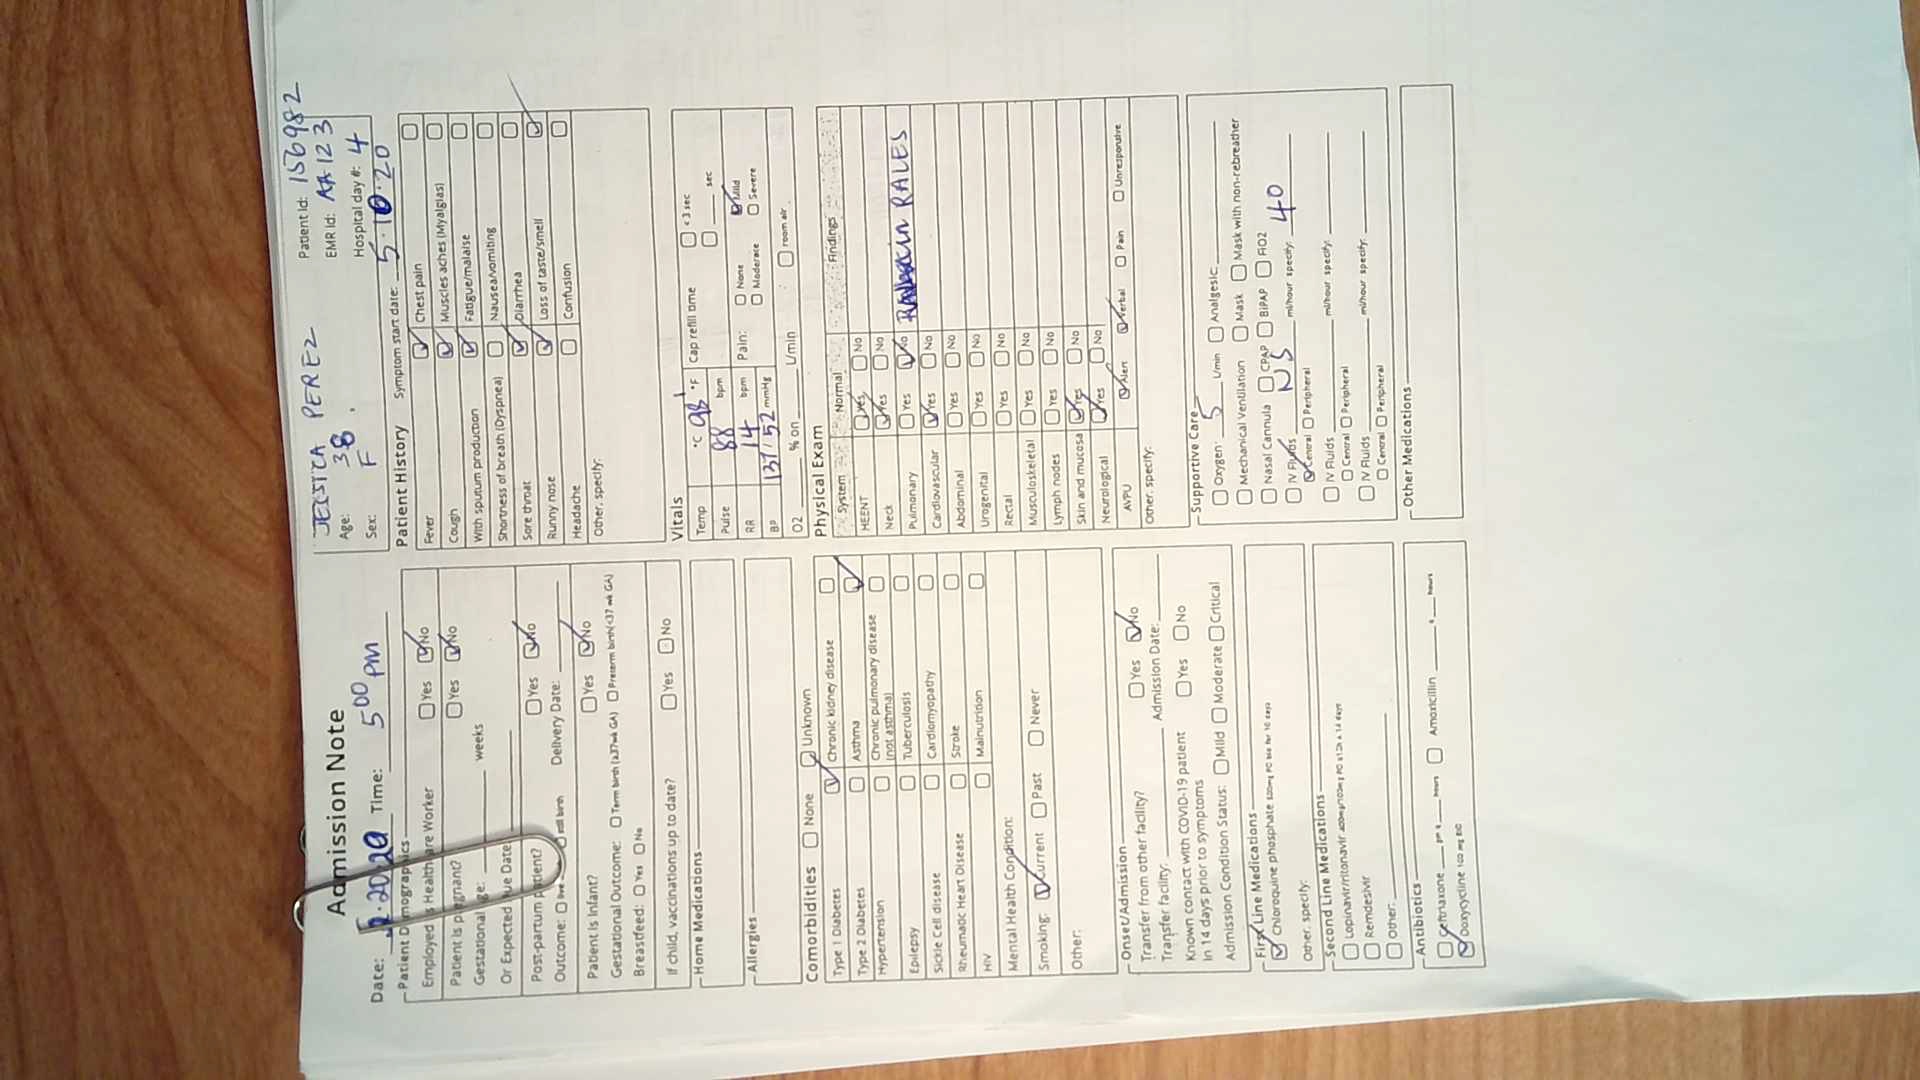 Admission Note
Date: Time: 5 00 pm
JESSICA PEREZ
Age: 38.
Sex: F
Patient Id: 156982
EMR Id: AA 123
Hospital day #: 4
Patient Demographics
Employed as Healthcare Worker Yes No
Patient is pregnant? Yes No
Gestational age: weeks
Or Expected Due Date
Post-partum patient? Yes No
Outcome: live still birth Delivery Date:
Patient is Infant? Yes No
Gestational Outcome: Term birth (≥37wk GA) Preterm birth(<37 wk GA)
Breastfeed: Yes No
If child, vaccinations up to date? Yes No
Home Medications
Allergies
Comorbidities None Unknown
Type 1 Diabetes Chronic kidney disease
Type 2 Diabetes Asthma
Hypertension Chronic pulmonary disease
(not asthma)
Epilepsy Tuberculosis
Sickle Cell disease Cardiomyopathy
Rheumatic Heart Disease Stroke
HIV Malnutrition
Mental Health Condition:
Smoking: Current Past Never
Other:
Onset/Admission
Transfer from other facility? Yes No
Transfer facility: Admission Date:
Known contact with COVID-19 patient
in 14 days prior to symptoms Yes No
Admission Condition Status: Mild Moderate Critical
First Line Medications
Chloroquine phosphate 500mg PO BID for 10 days
Other: specify:
Second Line Medications
Lopinavir/ritonavir 400mg/100mg PO x12h x 14 days
Remdesivir
Other:
Antibiotics
Ceftriaxone gm q hours Amoxicillin q hours
Doxycycline 100 mg BID
Patient History Symptom start date: 5.10.20
Fever Chest pain
Cough Muscles aches (Myalgias)
With sputum production Fatigue/malaise
Shortness of breath (Dyspnea) Nausea/vomiting
Sore throat Diarrhea
Runny nose Loss of taste/smell
Headache Confusion
Other: specify:
Vitals
Temp °C 98.1 °F Cap refill time < 3 sec
Pulse 88 bpm sec
RR 14 bpm Pain: None Mild
Moderate Severe
BP 137/52 mmHg
O2 % on L/min room air
Physical Exam
System Normal Findings
HEENT Yes No
Neck Yes No
Pulmonary Yes No RALES
Cardiovascular Yes No
Abdominal Yes No
Urogenital Yes No
Rectal Yes No
Musculoskeletal Yes No
Lymph nodes Yes No
Skin and mucosa Yes No
Neurological Yes No
AVPU Alert Verbal Pain Unresponsive
Other: specify:
Supportive Care
Oxygen: 5 L/min Analgesic:
Mechanical Ventilation Mask Mask with non-rebreather
Nasal Cannula CPAP BiPAP FiO2
IV Fluids NS ml/hour specify: 40
Central Peripheral
IV Fluids ml/hour specify:
Central Peripheral
IV Fluids ml/hour specify:
Central Peripheral
Other Medications